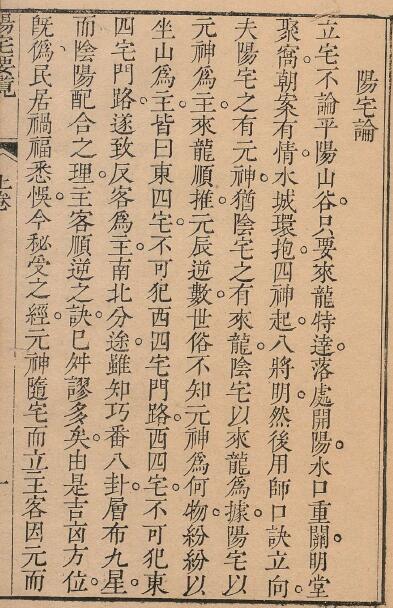 陽宅論
立宅不論平陽山谷只要來龍特達落處開陽水口重關明堂
聚窩朝案有情水城環抱四神起八將明然後用師口訣立向
夫陽宅之有元神猶陰宅之有來龍陰宅以來龍爲據陽宅以
元神爲主來龍順推元辰逆數世俗不知元神爲何物紛紛以
坐山爲主皆曰東四宅不可犯西四宅門路西四宅不可犯東
四宅門路遂致反客爲主南北分途雖知巧番八卦層布九星
而陰陽配合之理主客順逆之訣已舛謬多矣由是吉凶方位
旣僞民居禍福悉悞今秘受之經元神隨宅而立主客因元而
陽宅要覽
上卷
一